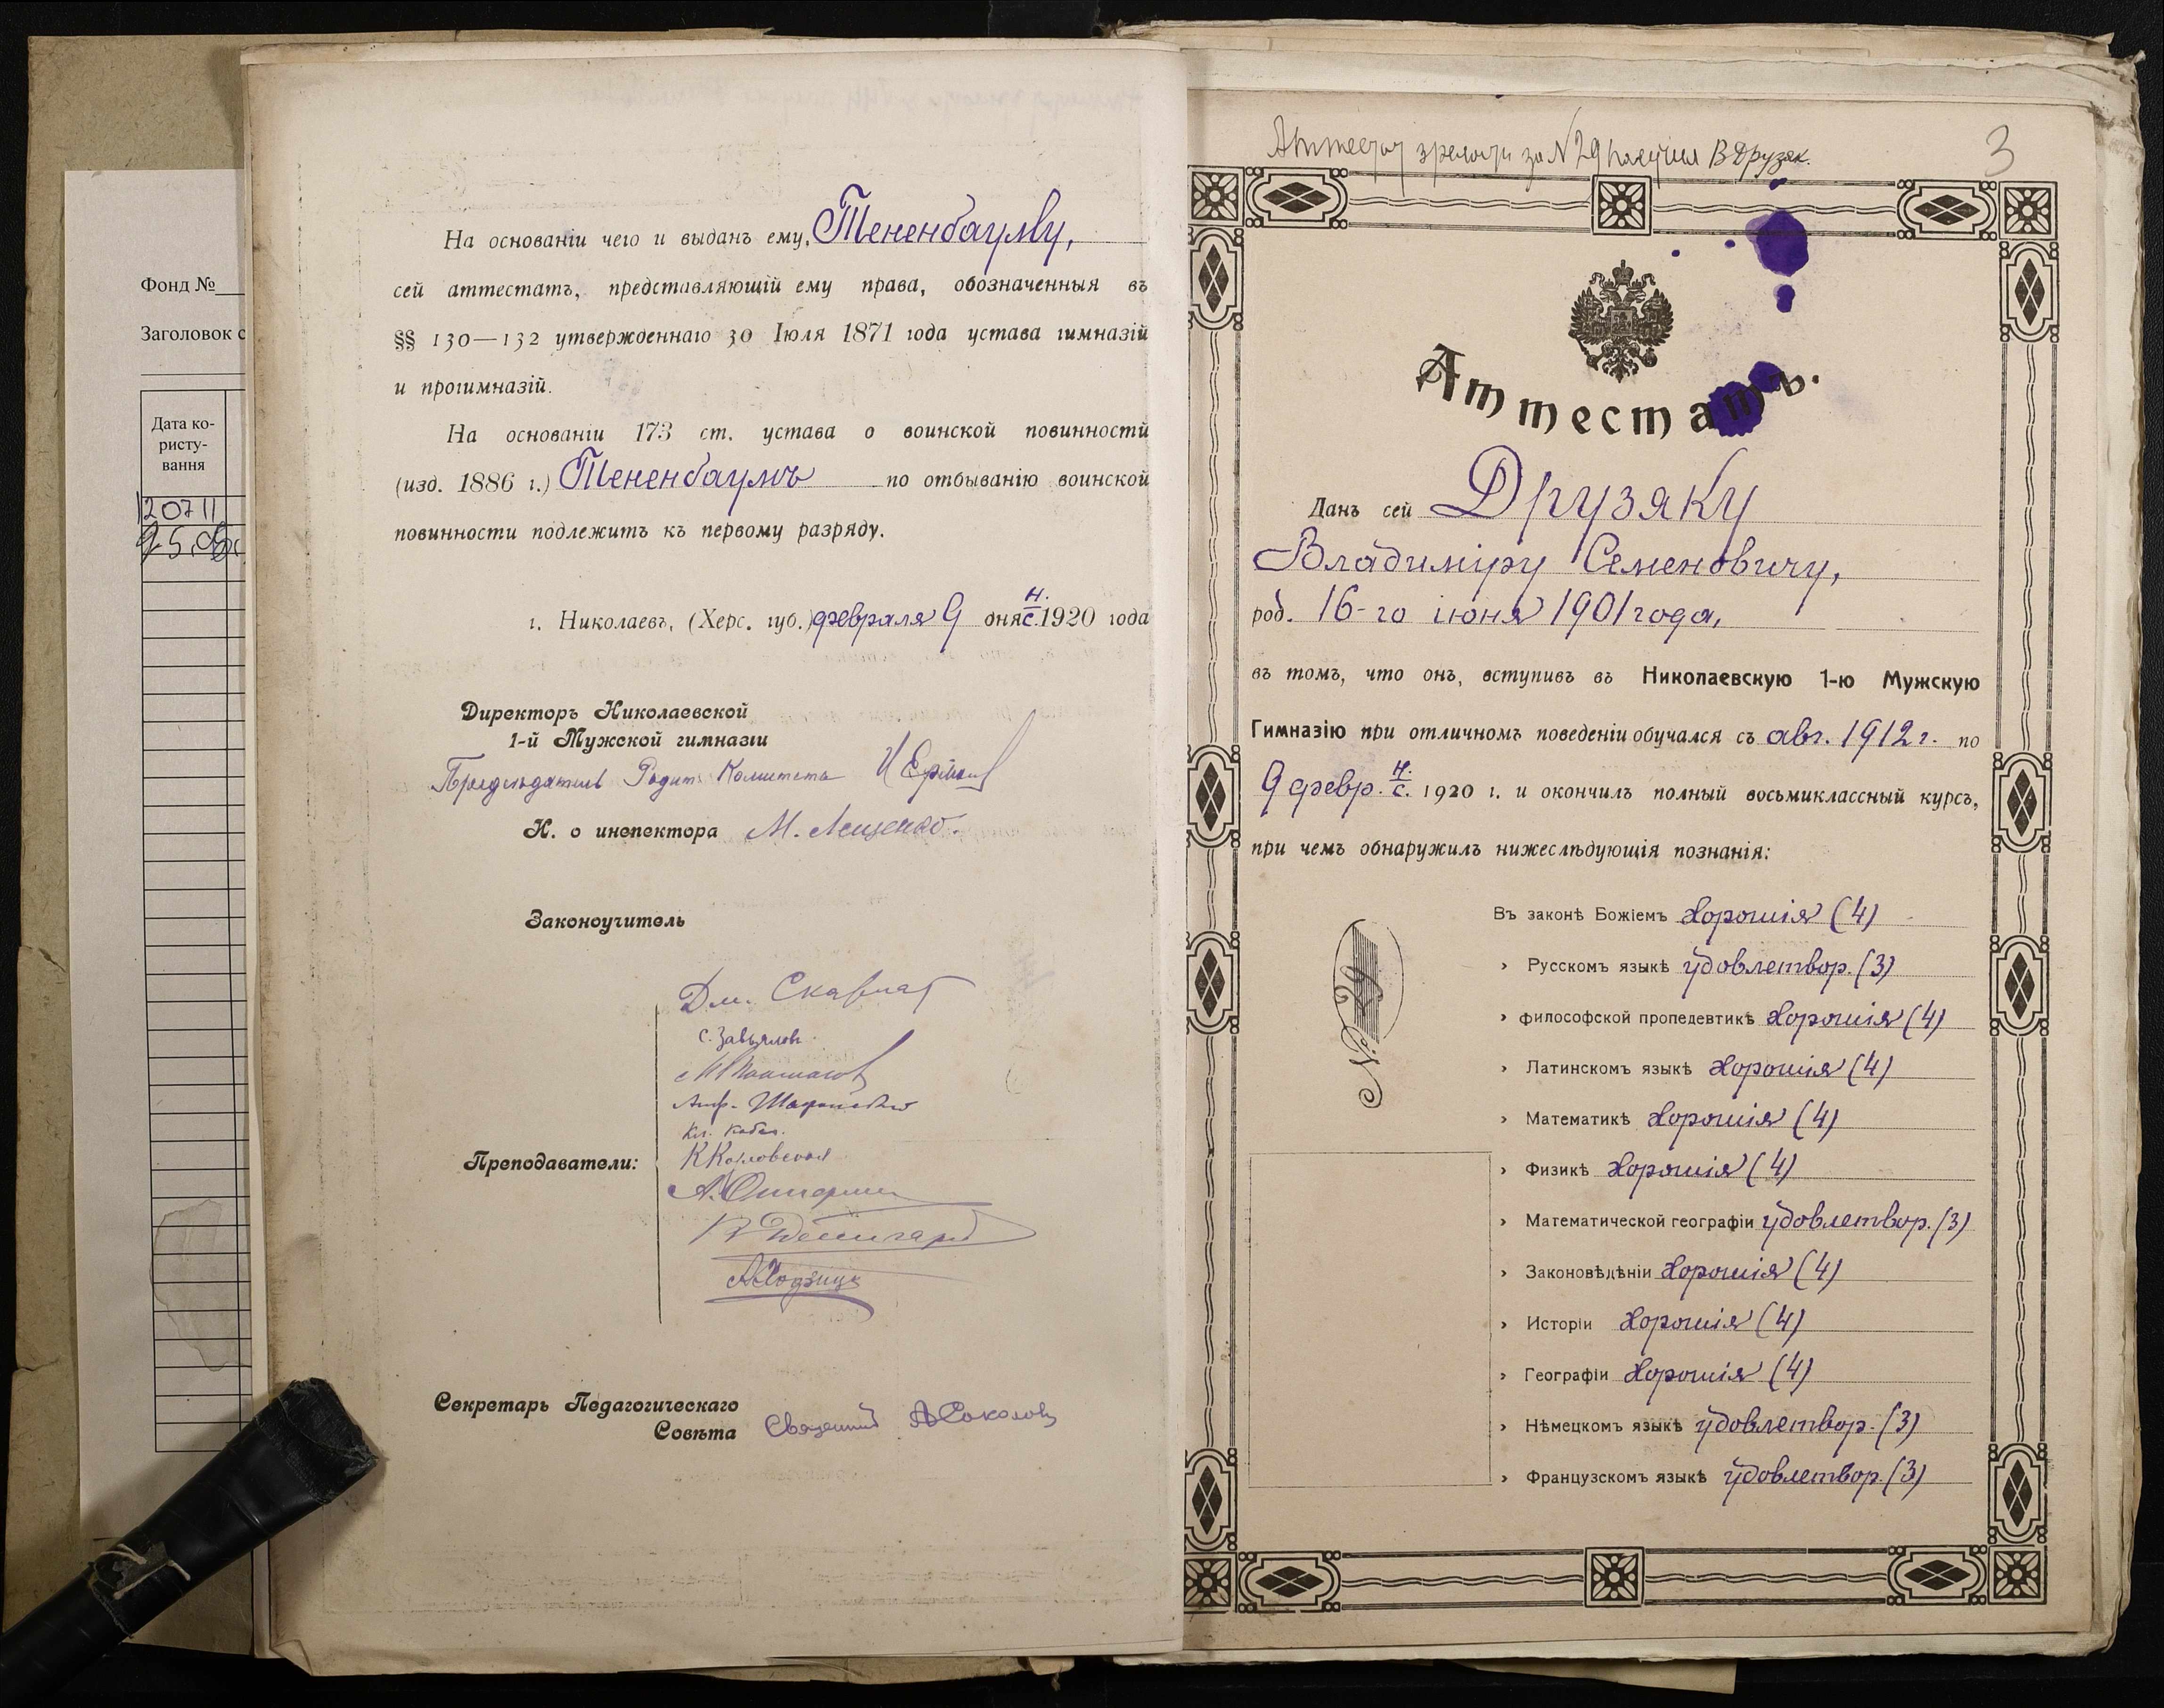 Фонд №
Заголовок с
Дата ко-
ристу-
вання
120711
На основаніи чего и выданъ ему, Тененбауму,
сей аттестатъ, представляющій ему права, обозначенныя въ
§§ 130—132 утвержденнаго 30 Іюля 1871 года устава гимназій
и прогимназій.
На основаніи 173 ст. устава о воинской повинности
(изд. 1886 г.) Тененбаумъ по отбыванію воинской
повинности подлежитъ къ первому разряду.
г. Николаевъ, (Херс. губ.) февраля 9 дня н.с. 1920 года
Директоръ Николаевской
1-й Мужской гимназіи
Предсѣдатель Родит. Комитета
Н. о инспектора М. Лещенко.
Законоучитель
Дм.
С. Завьялов
Преподаватели:
Секретарь Педагогическаго
Совѣта Священникъ А Соколовъ
Аттестат зрелости за N 29 получил В Друзяк.
3
Аттестатъ.
Данъ сей Друзяку
Владиміру Семеновичу,
род. 16-го іюня 1901 года,
въ томъ, что онъ, вступивъ въ Николаевскую 1-ю Мужскую
Гимназію при отличномъ поведеніи обучался съ авг. 1912 г. по
9 февр. н.с. 1920 г. и окончилъ полный восьмиклассный курсъ,
при чемъ обнаружилъ нижеслѣдующія познанія:
№ 29
Въ законѣ Божіемъ хорошія (4)
› Русскомъ языкѣ удовлетвор. (3)
› философской пропедевтикѣ хорошія (4)
› Латинскомъ языкѣ хорошія (4)
› Математикѣ хорошія (4)
› Физикѣ хорошія (4)
› Математической географіи удовлетвор. (3)
› Законовѣдѣніи хорошія (4)
› Исторіи хорошія (4)
› Географіи хорошія (4)
› Нѣмецкомъ языкѣ удовлетвор. (3)
› Французскомъ языкѣ удовлетвор. (3)